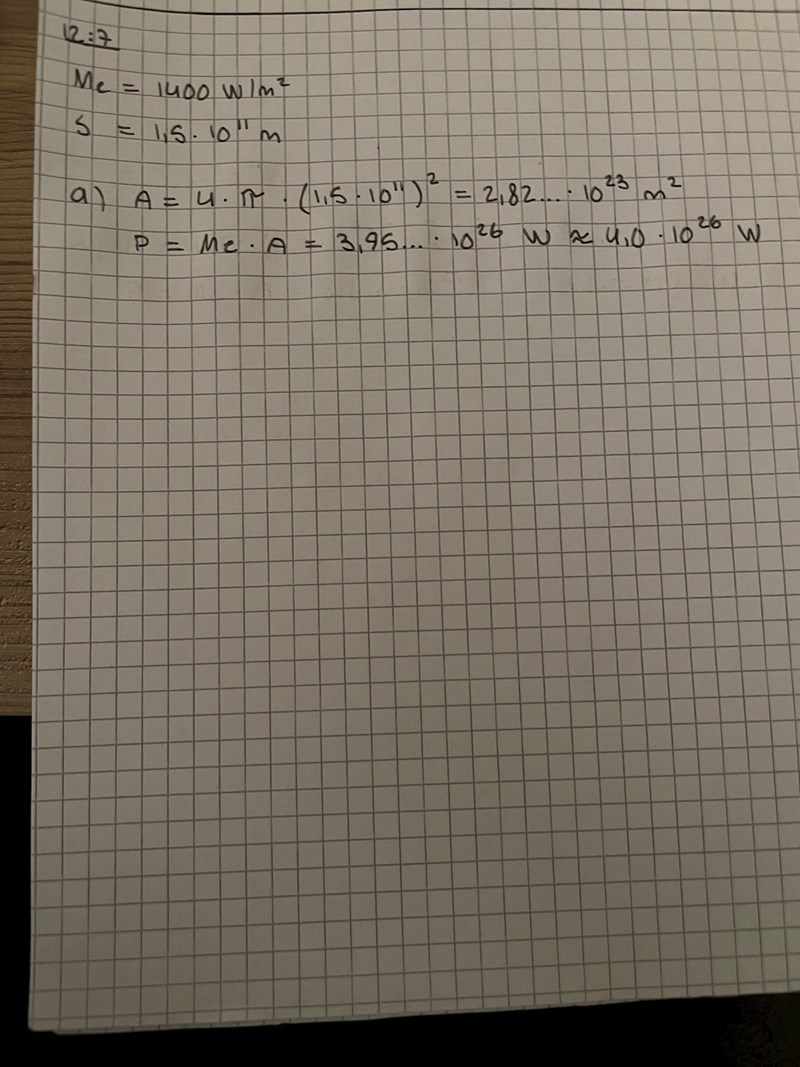 12:7
Me = 1400 W/m²
S = 1,5 · 10¹¹ m
a) A = 4 · π · (1,5 · 10¹¹)² = 2,82... · 10²³ m²
P = Me · A = 3,95... · 10²⁶ W ≈ 4,0 · 10²⁶ W